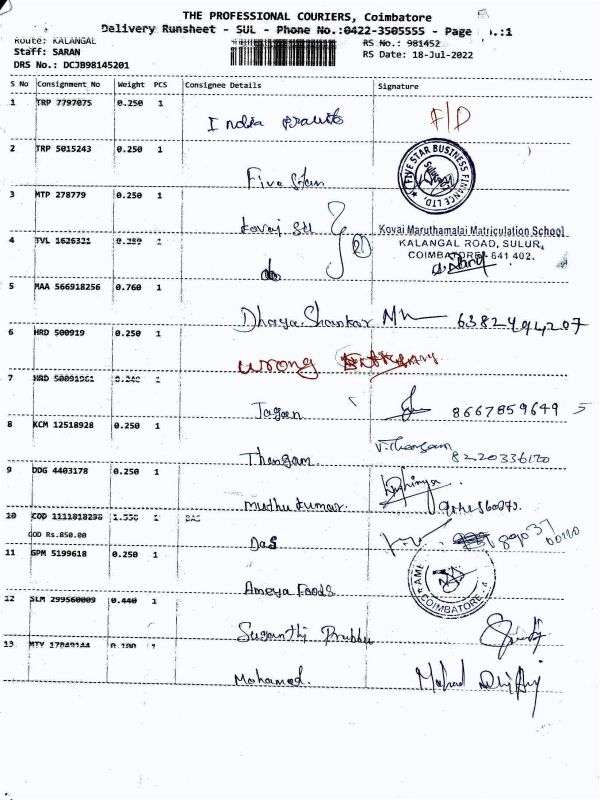 THE PROFESSIONAL COURIERS, Coimbatore
Delivery Runsheet - SUL - Phone No.:0422-3505555 - Page .:1
Route: KALANGAL
RS No.: 981452
Staff: SARAN
RS Date: 18-Jul-2022
DRS No.: DCJB98145201
S No Consignment No Weight PCS Consignee Details Signature
1 TRP 7797075 0.250 1
India F/D
2 TRP 5015243 0.250 1
FIVE STAR BUSINESS FINANCE LTD.
Five Star
3 MTP 278779 0.250 1
Kovai
Kovai Maruthamalai Matriculation School
4 TVL 1626321 0.250 1
KALANGAL ROAD, SULUR,
COIMBATORE - 641 402.
do
5 MAA 566918256 0.760 1
Dhaya Shankar 6382494207
6 HRD 500919 0.250 1
wrong
7 HRD 50091961 1
Jagan 8667859649
8 KCM 12518928 0.250 1
Thangam V. Thangam
8220336170
9 DDG 4403178 0.250 1
Muthu kumar
10 COD 1111818298 1.550 1 DAS
COD Rs.850.00
Das
11 GPM 5199618 0.250 1
Ameya Foods COIMBATORE
12 SLM 299560009 0.440 1
Suganthi Prabhu
13 MTY 17849144 0.100 1
Mohamed.